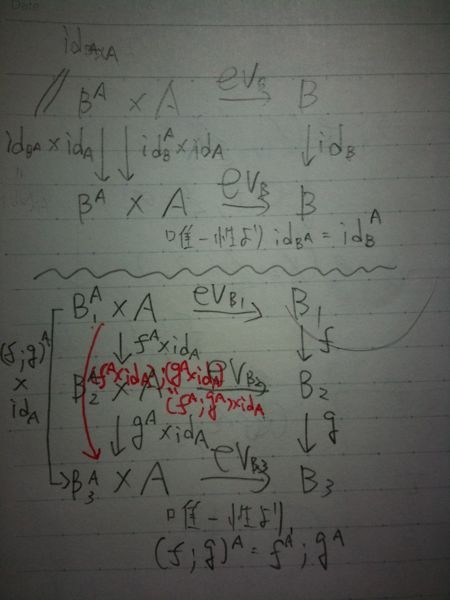 Date
B^A × A ev_B B
id_{B^A} × id_A id_B^A × id_A id_B
B^A × A ev_B B
唯一性より id_{B^A} = id_B^A
B_1^A × A ev_{B_1} B_1
(f;g)^A × id_A f^A × id_A f
(f^A × id_A);(g^A × id_A)
B_2^A × A ev_{B_2} B_2
(f^A;g^A) × id_A
g^A × id_A g
B_3^A × A ev_{B_3} B_3
唯一性より,
(f;g)^A = f^A;g^A